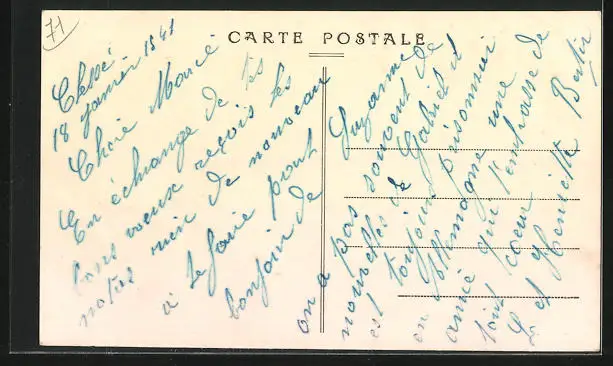 71
CARTE POSTALE
Clessé
18 janvier 1941
Chère Marie
En échange de tes
bons voeux reçois les
notres rien de nouveau
à te faire pour
bonjour de
Suzanne
on a pas souvent de
nouvelles de Gabriel il
est toujours prisonnier
en Allemagne une
amie qui t'embrasse de
tout coeur
L et Henriette Bertin